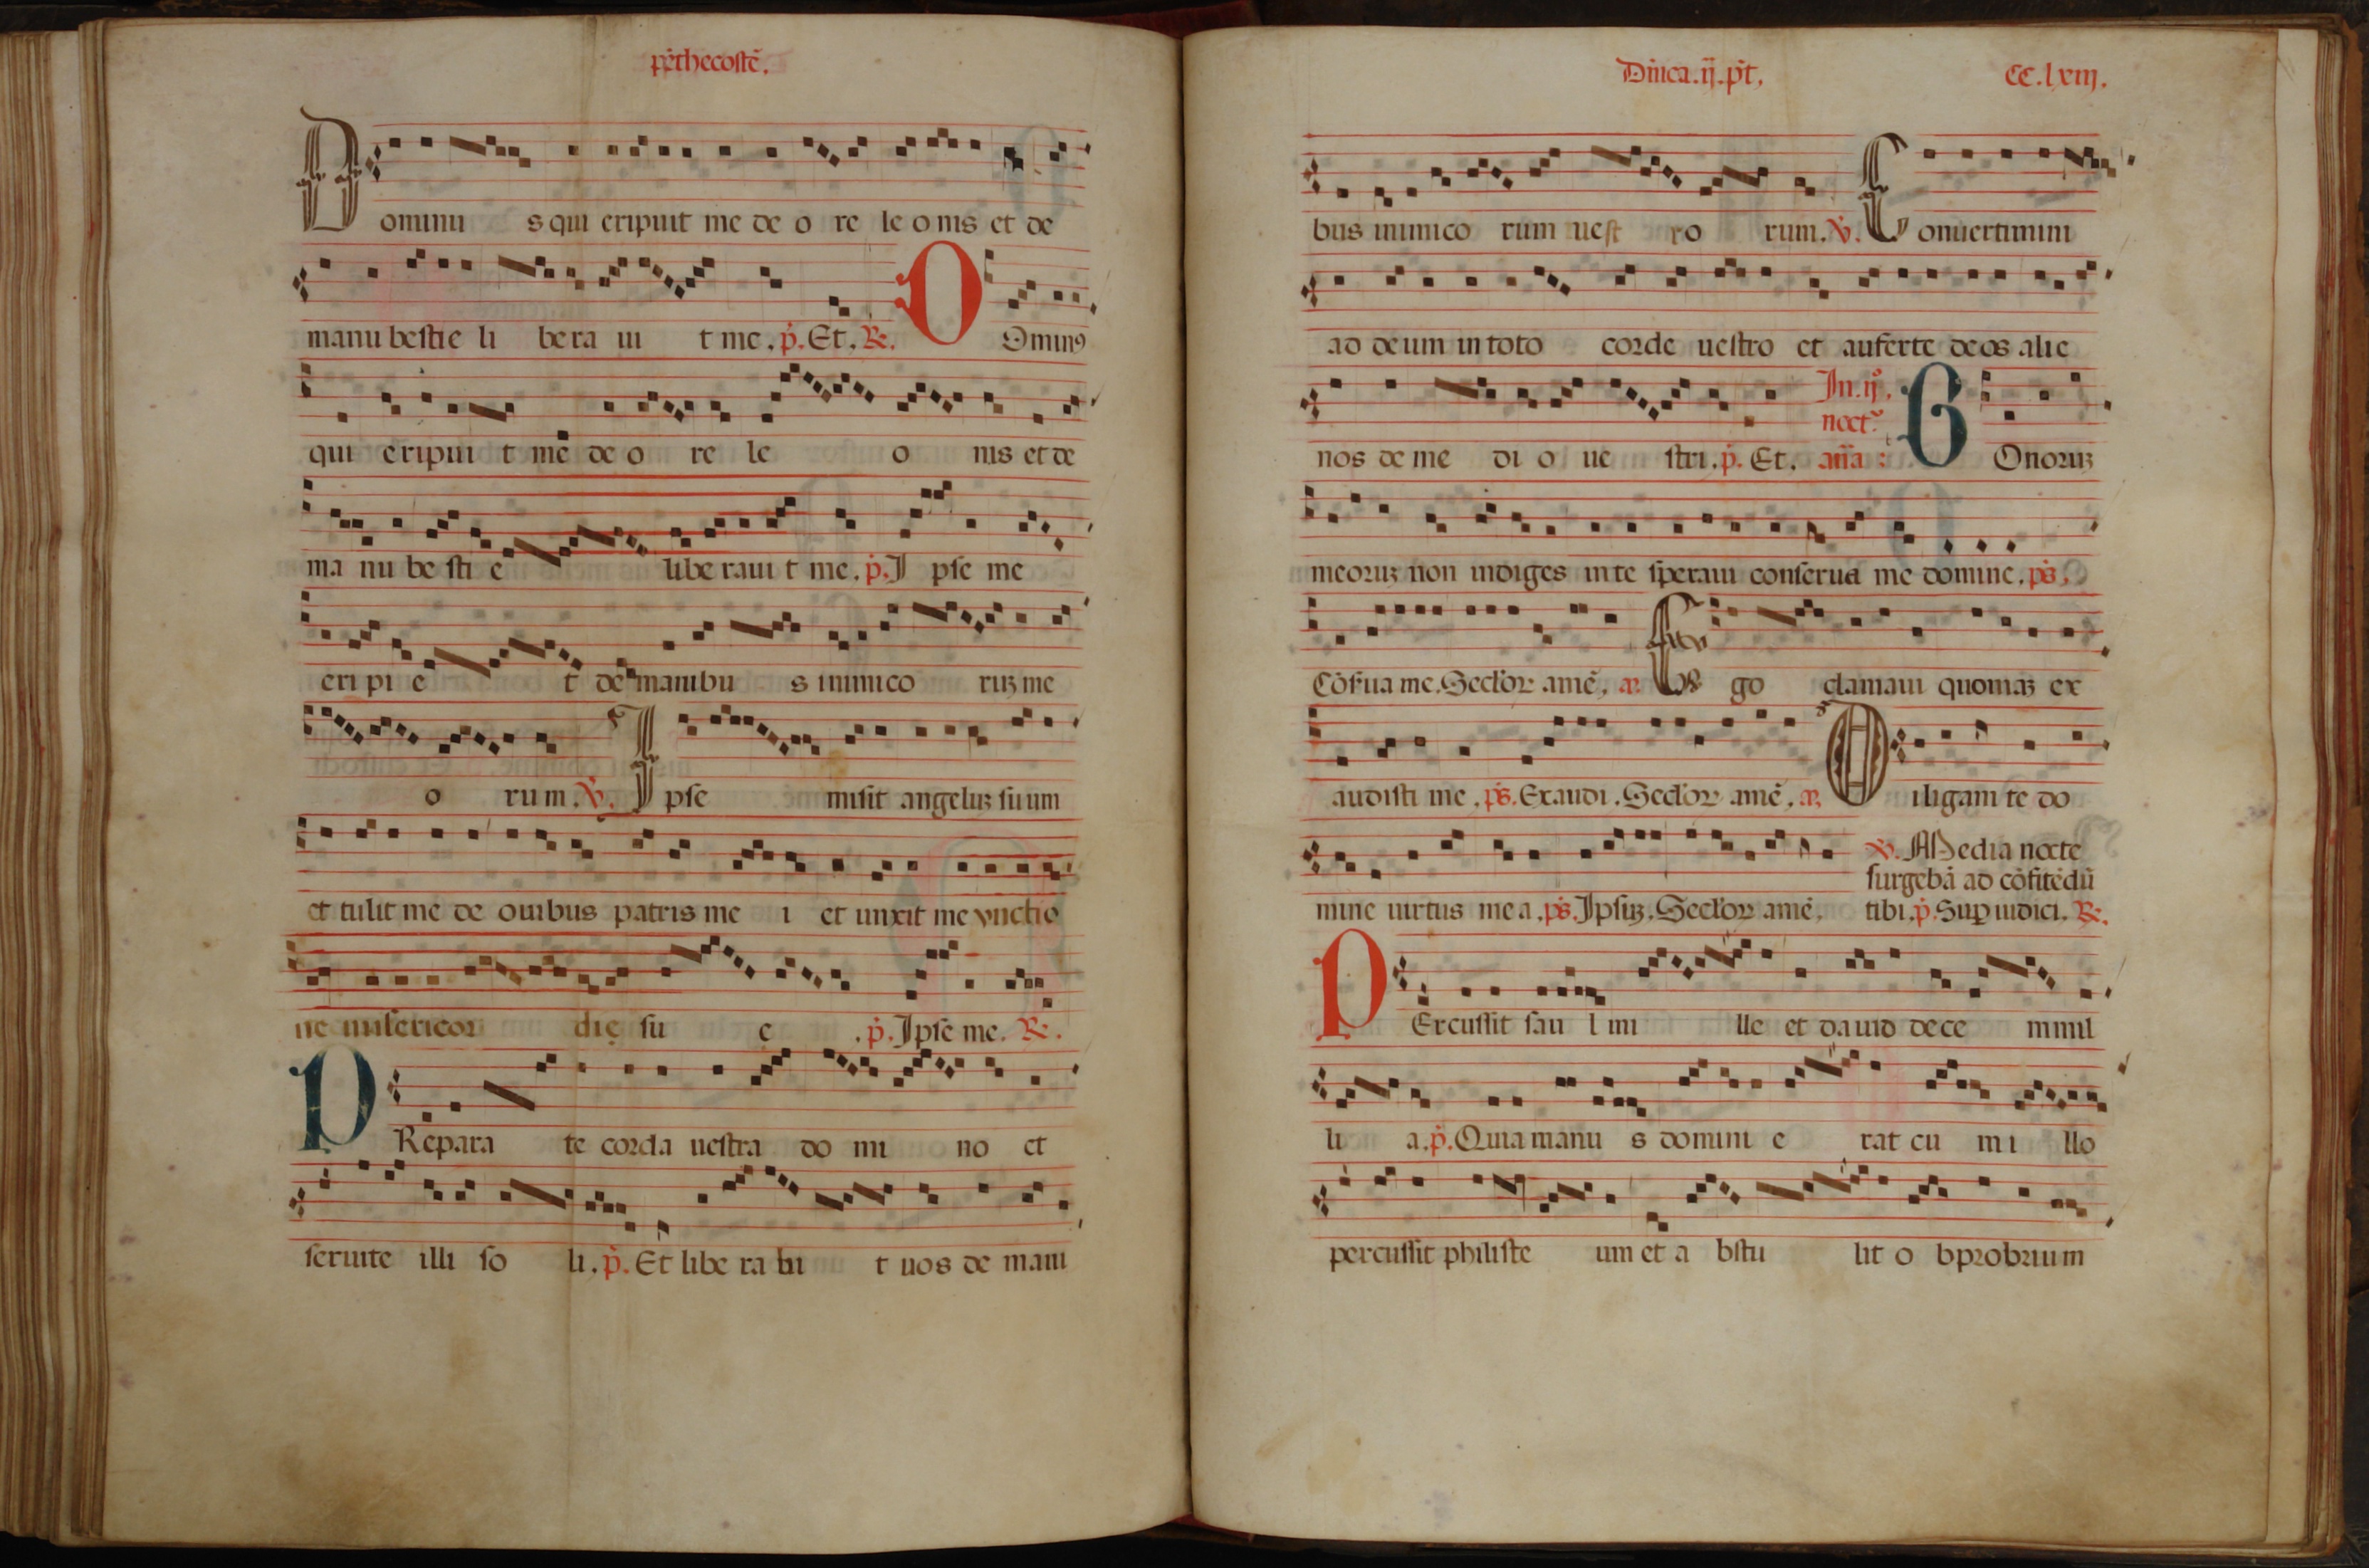 pēthecostē.
Dominu s qui eripuit me de o re le o nis et de
manu bestie li be ra ui t me. p̄. Et. R̄. Ominꝰ
qui eripui t me de o re le o nis et de
ma nu be sti e libe raui t me. p̄. I pse me
eri pi e t de manibu s inimico ruꝫ me
o rum. V̄. Ipse misit angeluꝫ suum
et tulit me de ouibus patris me i et unxit me vnctio
ne misericor die su e . p̄. Ipse me. R̄.
PRepara te corda uestra do mi no et
seruite illi so li. p̄. Et libe ra bi t uos de manu
Dn̄ica. ij. pt̄. CC. lxiij.
bus inimico rum uest ro rum. V̄. Conuertimini
ad deum in toto corde uestro et auferte deos alie
nos de me di o ue stri. p̄. Et. In. ijº. noctº. an̄a : BOnoruꝫ
meoruꝫ non indiges in te speraui conserua me domine. ps̄.
Cōs̄ua me. Seclor amē. a. Ego clamaui quoniaꝫ ex
audisti me. ps̄. Exaudi. Seclor amē. a. Diligam te do
V̄. Media nocte
surgebā ad cōfitēdū
mine uirtus mea. ps̄. Ipsuꝫ. Seclor amē. tibi. p̄. Suꝑ iudici. R̄.
PErcussit sau l mi lle et dauid dece m mil
li a. p̄. Quia manu s domini e rat cu m i llo
percussit philiste um et a bstu lit o bprobrium